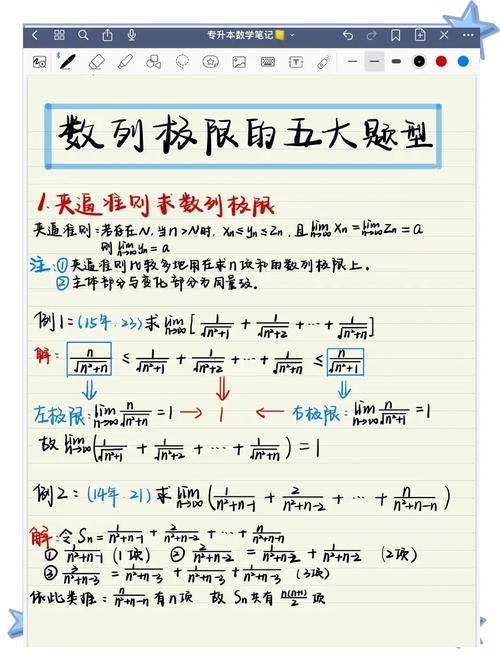 专升本数学笔记
数列极限的五大题型
1.夹逼准则求数列极限
夹逼准则:若存在N,当n>N时,xₙ≤yₙ≤zₙ,且lim n→∞ xₙ=lim n→∞ zₙ=a
则lim n→∞ yₙ=a
注:①夹逼准则比较多地用在求n项和的数列极限上。
②主体部分与变化部分为同量级。
例1:(15年.23)求lim n→∞[1/√(n²+1) + 1/√(n²+2) + ··· + 1/√(n²+n)]
解: n/√(n²+n) ≤ 1/√(n²+1) + 1/√(n²+2) + ··· + 1/√(n²+n) ≤ n/√(n²+1)
左极限:lim n→∞ n/√(n²+n) =1 → 1 ← 右极限:lim n→∞ n/√(n²+1) =1
故 lim n→∞(1/√(n²+1) + 1/√(n²+2) + ··· + 1/√(n²+n))=1
例2:(14年.21)求lim n→∞(1/(n²+n-1) + 2/(n²+n-2) + ··· + n/(n²+n-n))
解:令Sₙ=1/(n²+n-1) + 2/(n²+n-2) + ··· + n/(n²+n-n)
①1/(n²+n-1) (1项) ②2/(n²+n-2) = 1/(n²+n-2) + 1/(n²+n-2) (2项)
③3/(n²+n-3) = 1/(n²+n-3) + 1/(n²+n-3) + 1/(n²+n-3) (3项)
依此类推:n/(n²+n-n) 有n项 故Sₙ共有 n(n+1)/2 项